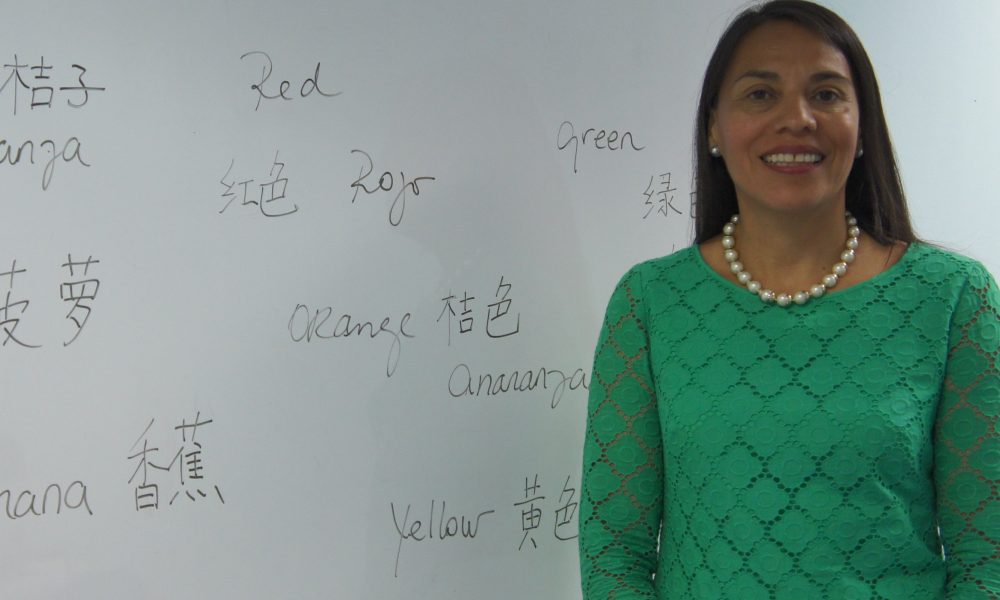 桔子
anza
Red
红色 Rojo
green
绿
菠萝
ORange 桔色
anaranja
nana 香蕉
Yellow 黄色